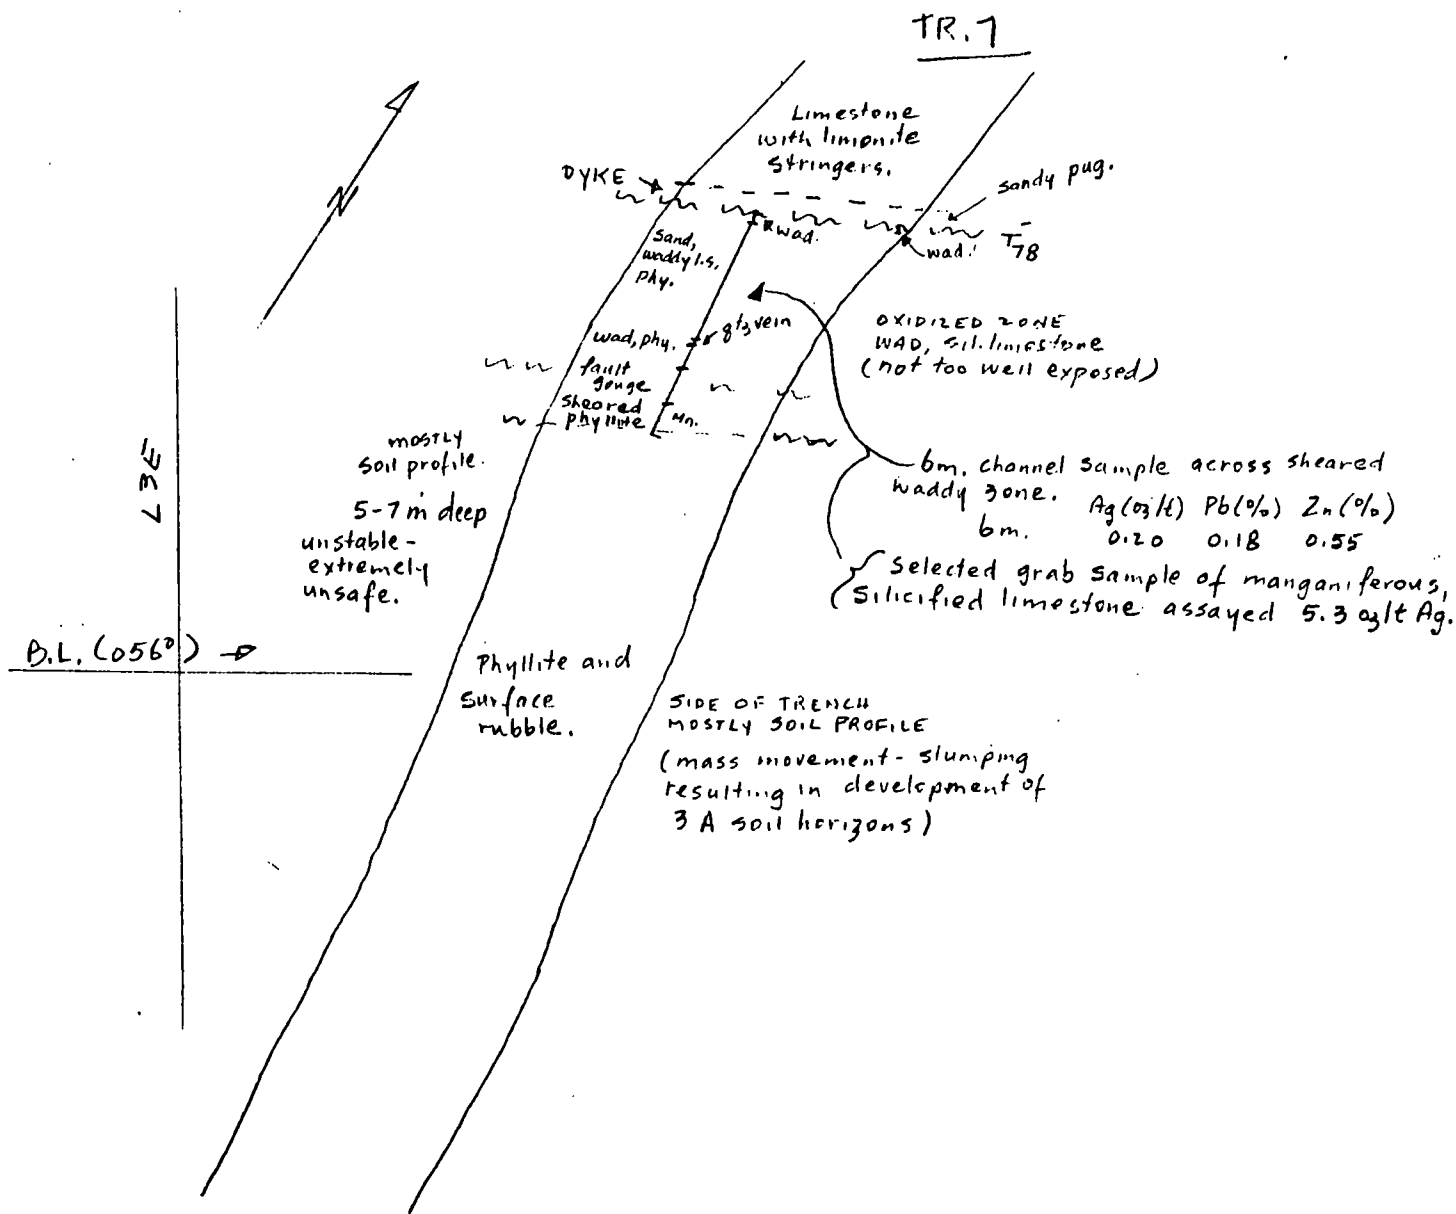 TR.7
Limestone
with limonite
stringers.
DYKE
sandy pug.
N
wad.
wad.
78
Sand,
waddy l.s.
phy.
qtz vein
wad, phy.
OXIDIZED ZONE
WAD, sil. limestone
(not too well exposed)
fault
gouge
sheared
phyllite
Mn.
mostly
soil profile.
5-7 m deep
unstable-
extremely
unsafe.
L3E
6m. channel sample across sheared
waddy zone.
Ag(oz/t) Pb(%) Zn(%)
6m. 0.20 0.18 0.55
Selected grab sample of manganiferous,
silicified limestone assayed 5.3 oz/t Ag.
B.L. (056°)
Phyllite and
surface
rubble.
SIDE OF TRENCH
MOSTLY SOIL PROFILE
(mass movement - slumping
resulting in development of
3 A soil horizons)